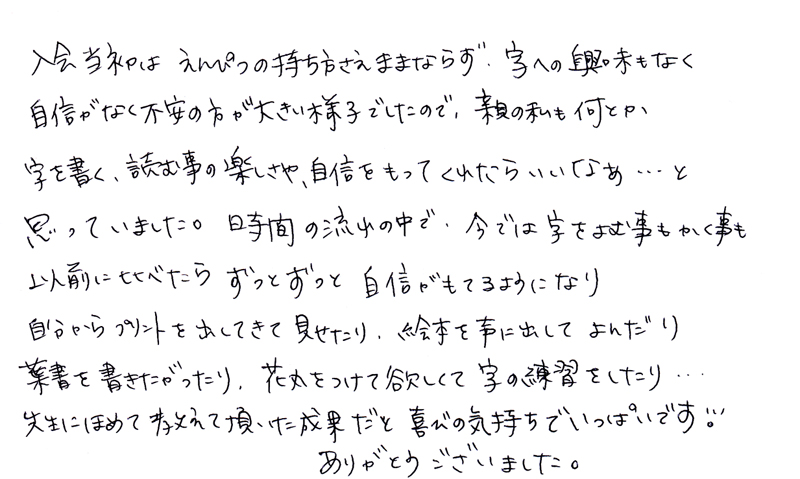 入会当初は えんぴつの持ち方さえままならず、字への興味もなく
自信がなく不安の方が大きい様子でしたので、親の私も何とか
字を書く、読む事の楽しさや、自信をもってくれたらいいなぁ…と
思っていました。時間の流れの中で、今では字をよむ事もかく事も
以前に比べたら ずっとずっと 自信がもてるようになり
自分からプリントを出してきて見せたり、絵本を声に出して よんだり
葉書を書きたがったり、花丸をつけて欲しくて字の練習をしたり…
先生にほめて教えて頂いた成果だと喜びの気持ちでいっぱいです!!
ありがとうございました。